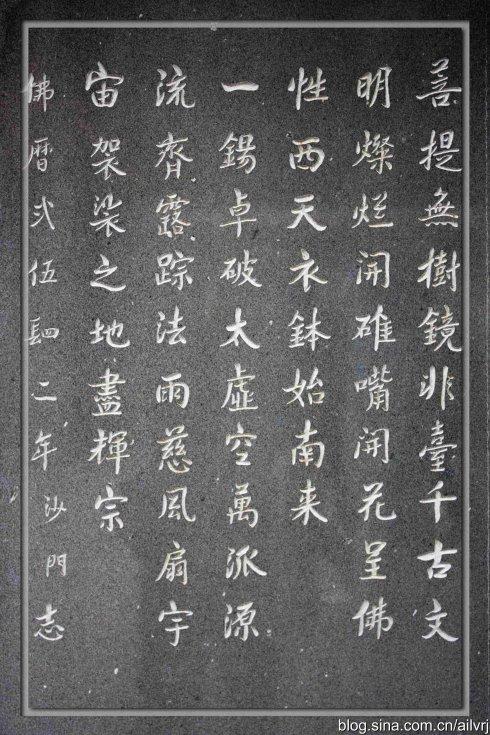 菩提無樹鏡非臺千古文
明燦烂開碓嘴開花呈佛
性西天衣鉢始南来
一錫卓破太虛空萬派源
流齊露踪法雨慈風扇宇
宙袈裟之地盡揮宗
佛曆弍伍四二年沙門志
blog.sina.com.cn/ailvrj